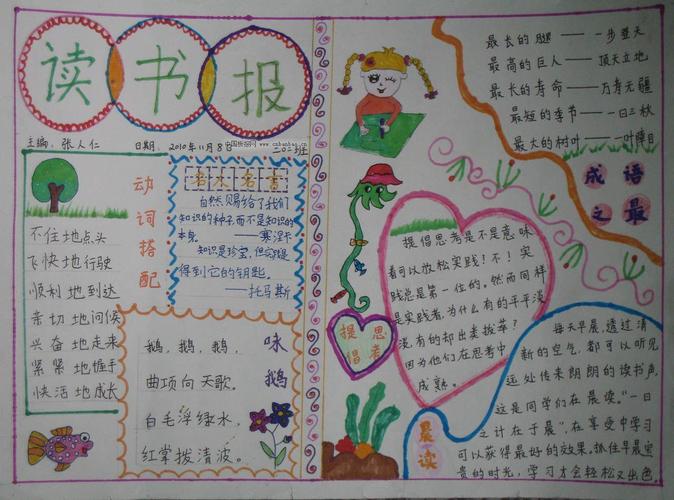 读书报
主编：张人仁 日期：2010年11月8日 三〇二班
不住地点头
飞快地行驶
顺利地到达
亲切地问候
兴奋地走来
紧紧地握手
快活地成长
动词搭配
名人名言
自然赐给了我们
知识的种子而不是知识的
本身 ——塞涅卡
知识是珍宝，但实践是
得到它的钥匙。
——托马斯
咏鹅
鹅，鹅，鹅，
曲项向天歌。
白毛浮绿水，
红掌拨清波。
最长的腿——一步登天
最高的巨人——顶天立地
最长的寿命——万寿无疆
最短的季节——一日三秋
最大的树叶——一叶障目
成语之最
提倡思考
提倡思考是不是意味
着可以放松实践！不！实
践总是第一位的。然而同样
是实践者，为什么有的平平淡
淡有的却出类拔萃？
因为他们在思考中
成熟。
晨读
每天早晨，透过清
新的空气，都可以听见
远处传来朗朗的读书声，
这是同学们在晨读。“一日
之计在于晨”，在享受中学习
可以获得最好的效果。抓住早晨宝
贵的时光，学习才会轻松又出色。